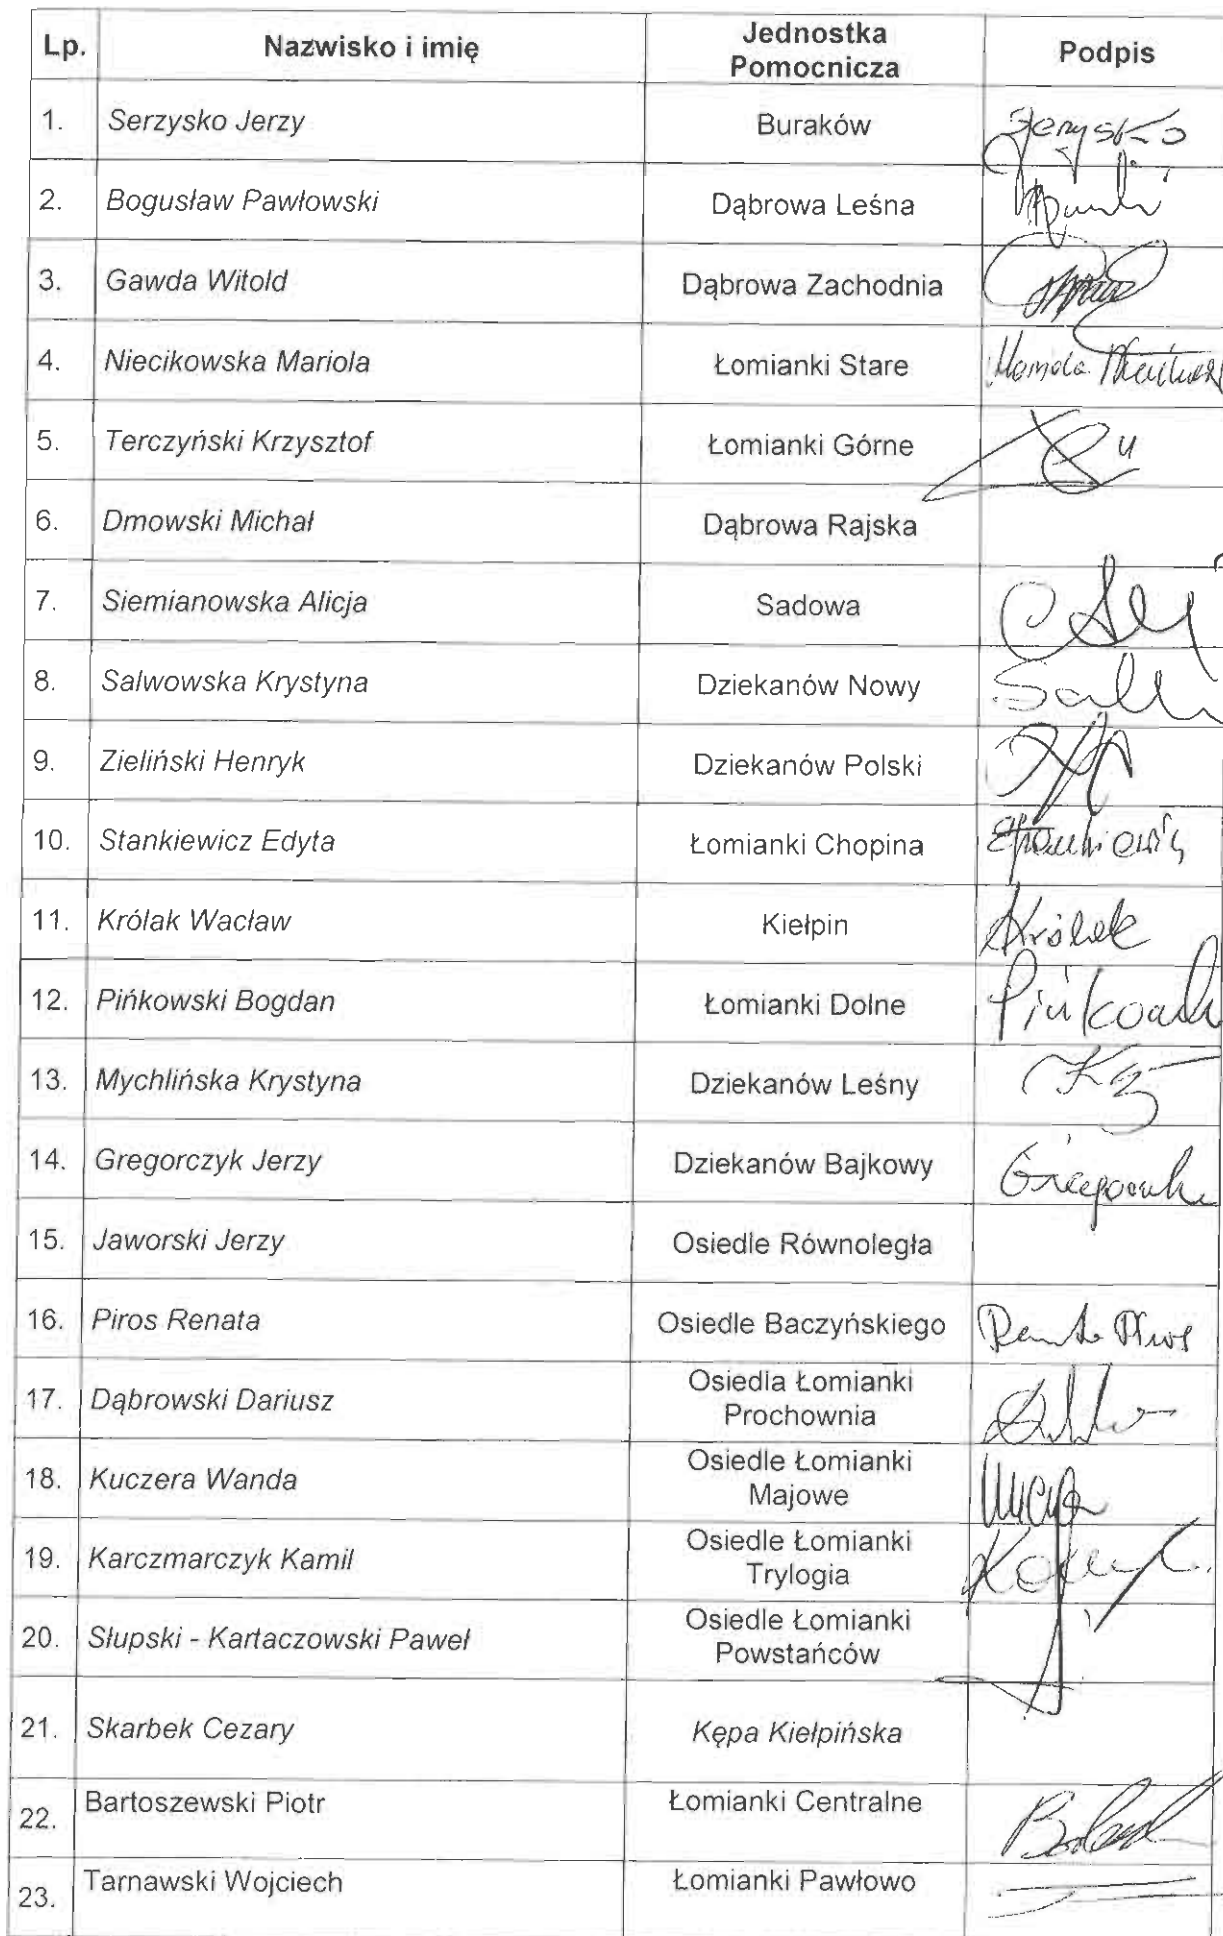 Lp. Nazwisko i imię Jednostka Pomocnicza Podpis
1. Serzysko Jerzy Buraków Serzysko
2. Bogusław Pawłowski Dąbrowa Leśna
3. Gawda Witold Dąbrowa Zachodnia
4. Niecikowska Mariola Łomianki Stare
5. Terczyński Krzysztof Łomianki Górne
6. Dmowski Michał Dąbrowa Rajska
7. Siemianowska Alicja Sadowa
8. Salwowska Krystyna Dziekanów Nowy
9. Zieliński Henryk Dziekanów Polski
10. Stankiewicz Edyta Łomianki Chopina
11. Królak Wacław Kiełpin Królak
12. Pińkowski Bogdan Łomianki Dolne
13. Mychlińska Krystyna Dziekanów Leśny
14. Gregorczyk Jerzy Dziekanów Bajkowy
15. Jaworski Jerzy Osiedle Równoległa
16. Piros Renata Osiedle Baczyńskiego Renata Piros
17. Dąbrowski Dariusz Osiedla Łomianki Prochownia
18. Kuczera Wanda Osiedle Łomianki Majowe
19. Karczmarczyk Kamil Osiedle Łomianki Trylogia
20. Słupski - Kartaczowski Paweł Osiedle Łomianki Powstańców
21. Skarbek Cezary Kępa Kiełpińska
22. Bartoszewski Piotr Łomianki Centralne
23. Tarnawski Wojciech Łomianki Pawłowo